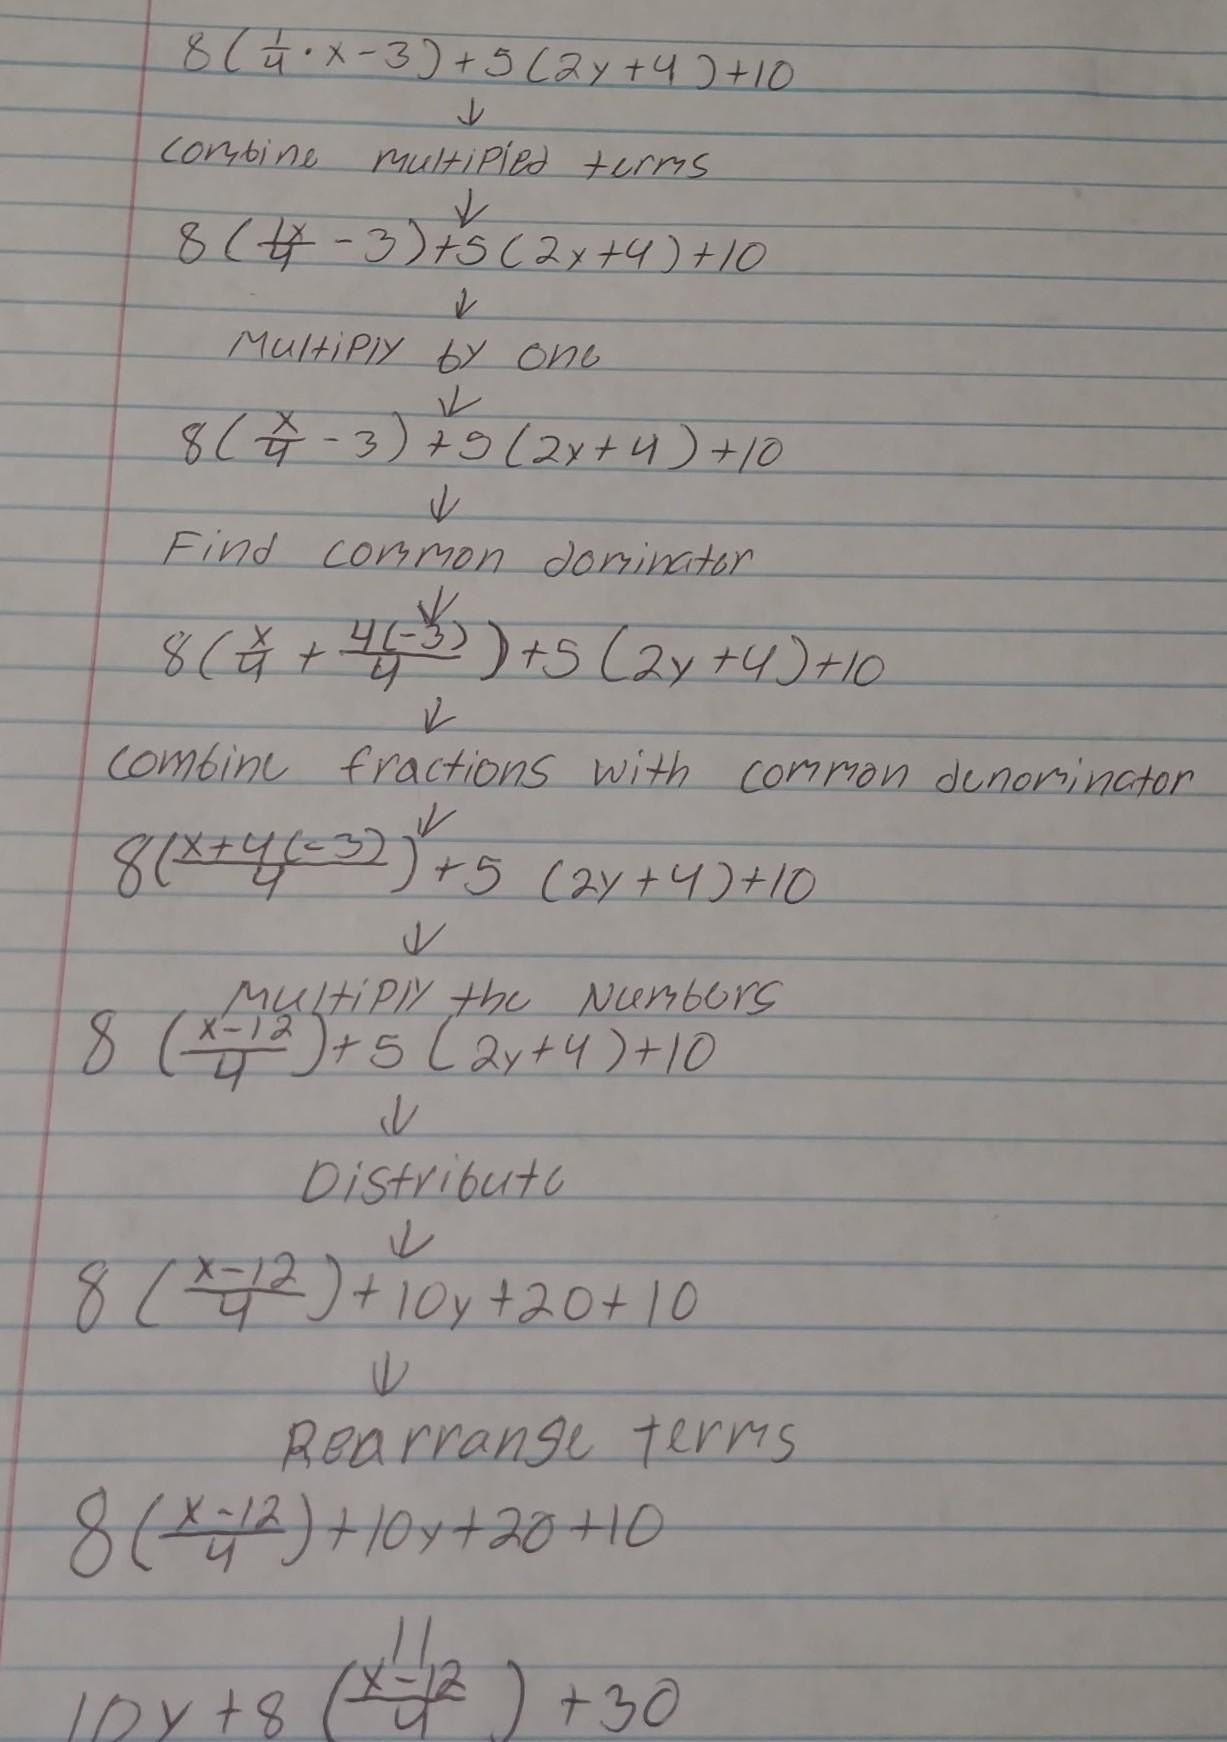 8(1/4 · x - 3) + 5(2y + 4) + 10
↓
combine multiplied terms
↓
8(1x/4 - 3) + 5(2x + 4) + 10
↓
Multiply by one
↓
8(x/4 - 3) + 5(2x + 4) + 10
↓
Find common dominator
↓
8(x/4 + 4(-3)/4) + 5(2y + 4) + 10
↓
combine fractions with common denominator
↓
8(x+4(-3)/4) + 5 (2y + 4) + 10
↓
Multiply the Numbers
8 (x-12/4) + 5 (2y + 4) + 10
↓
Distribute
↓
8 (x-12/4) + 10y + 20 + 10
↓
Rearrange terms
8(x-12/4) + 10y + 20 + 10
||
10y + 8 (x-12/4) + 30